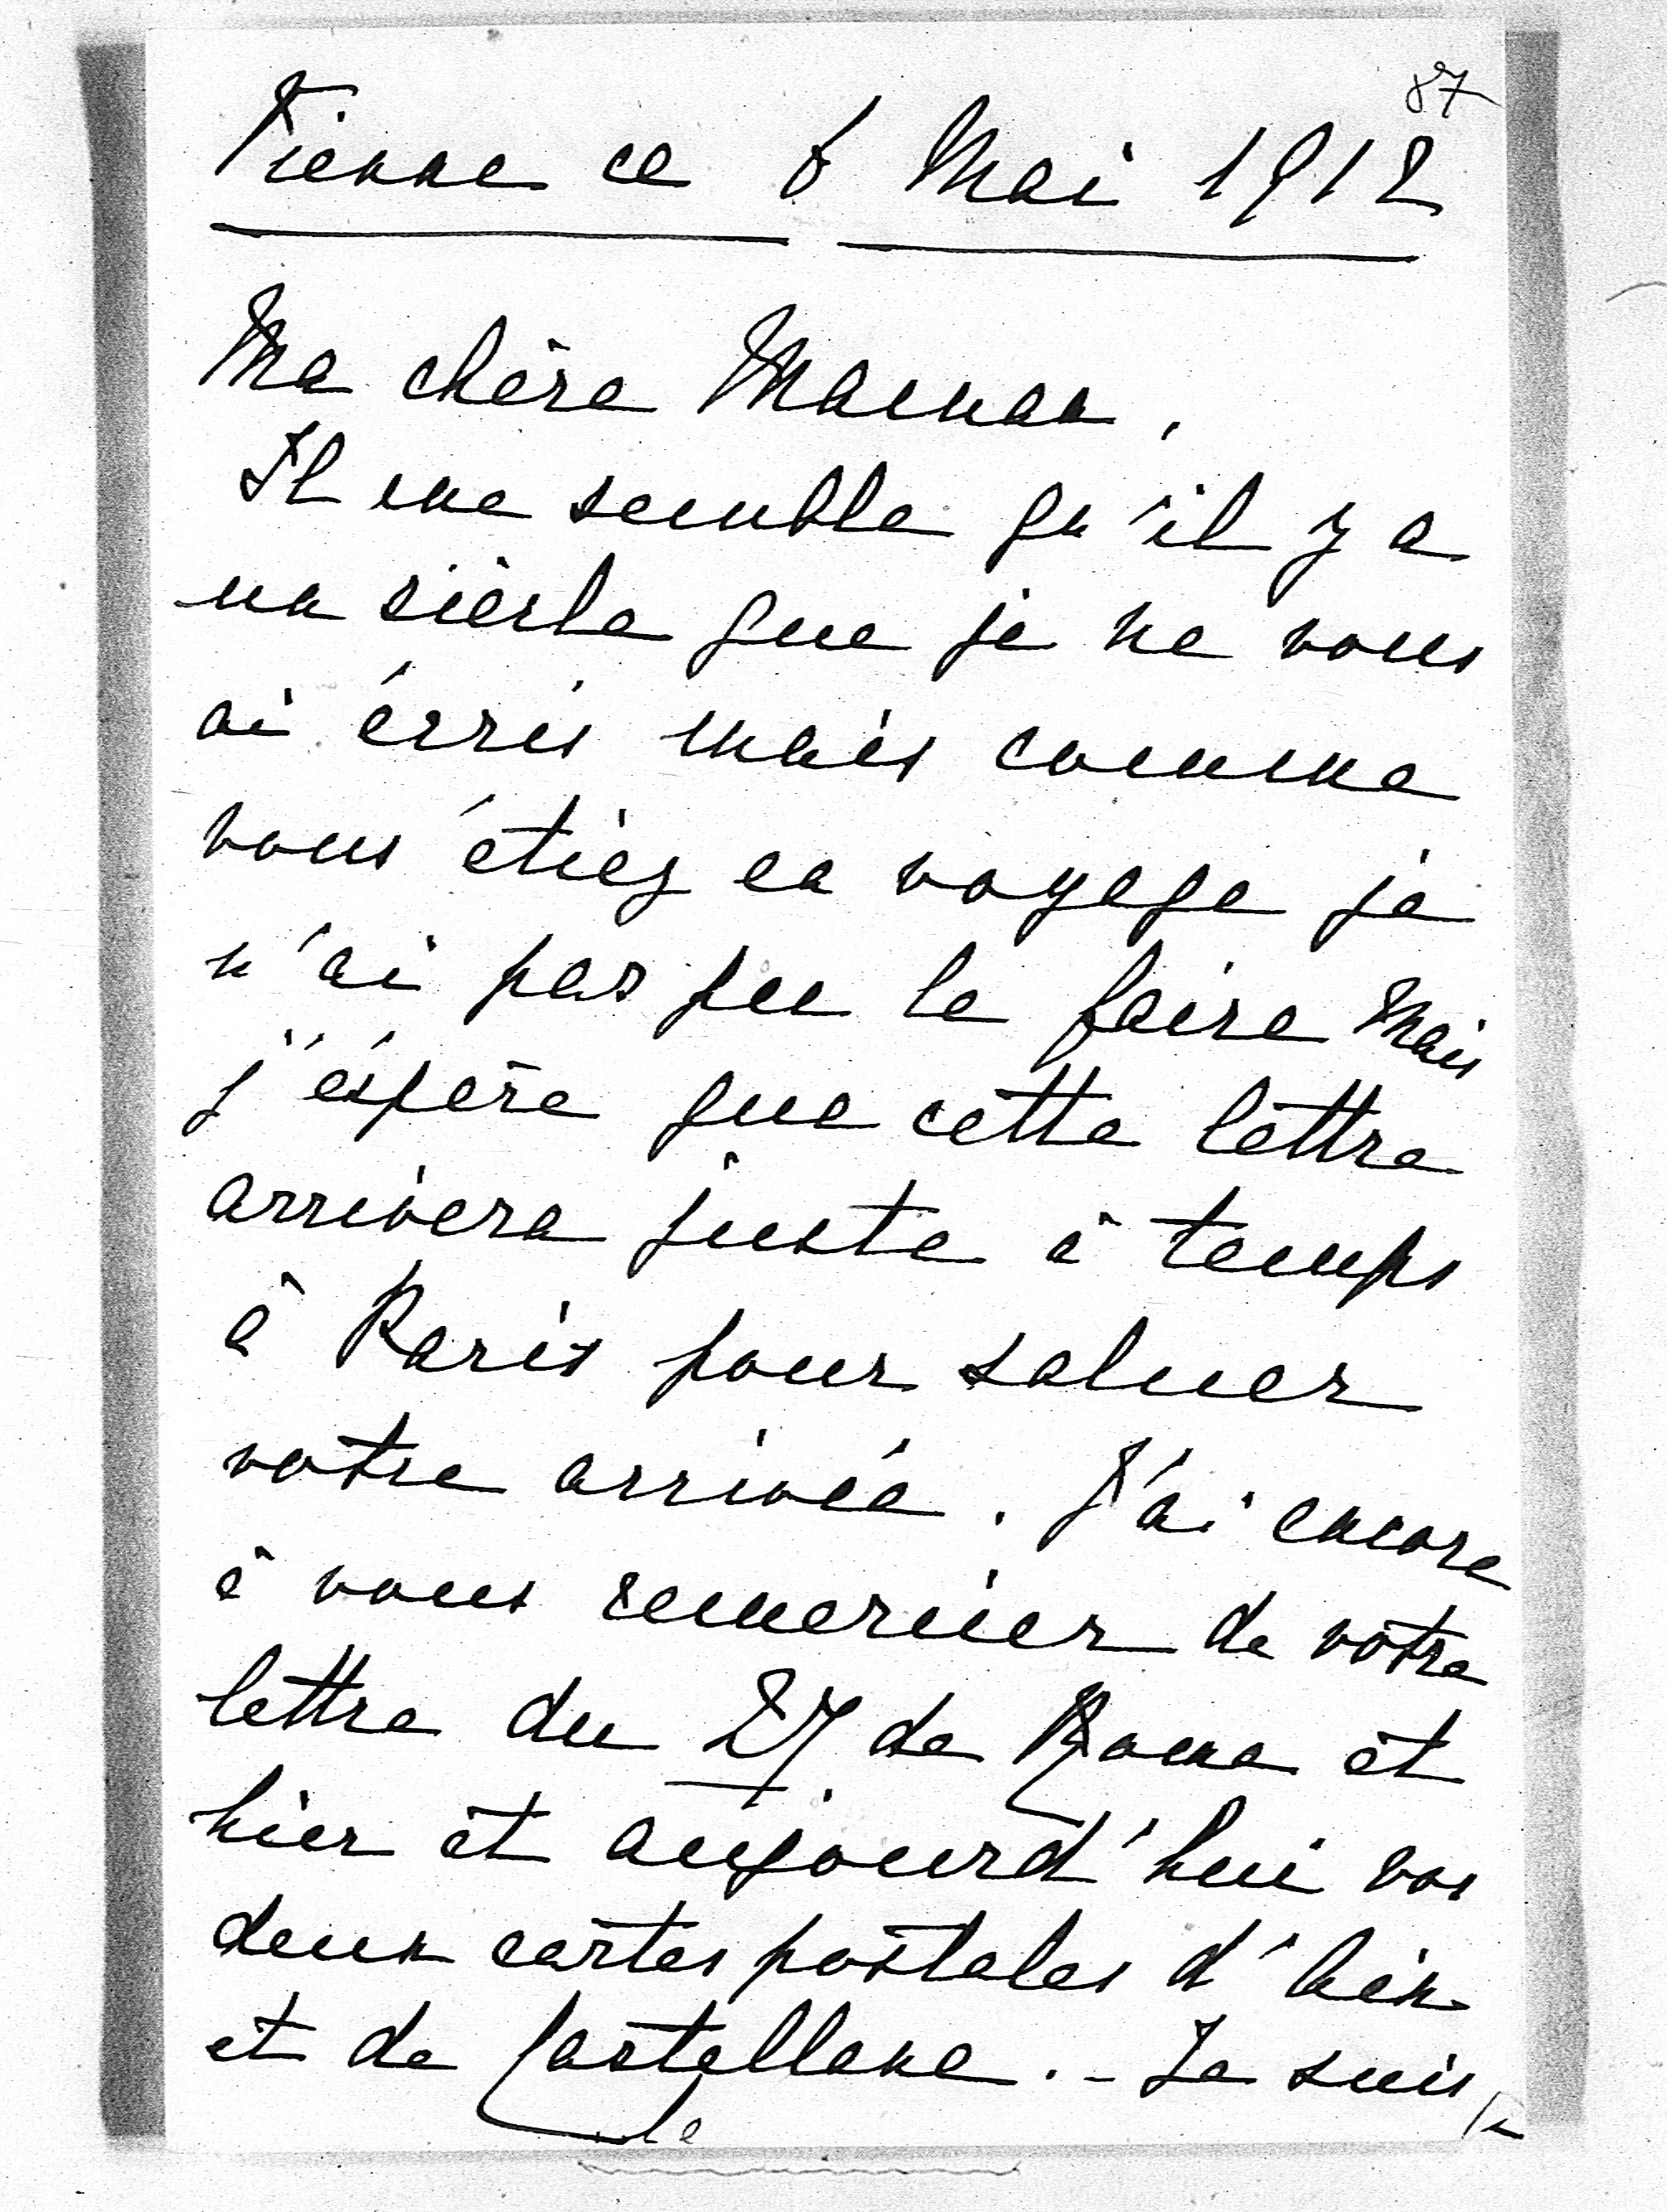 87
Vienne ce 6 Mai 1912
Ma chère Maman,
Il me semble qu'il y a
un siècle que je ne vous
ai écris mais comme
vous étiez en voyage je
n'ai pas pu le faire Mais
j'éspère que cette lettre
arrivera juste à temps
à Paris pour saluer
votre arrivée. J'ai encore
à vous remercier de votre
lettre du 27 de Rome et
hier et aujourd'hui vos
deux cartes postales d'Aix
et de Castellane. - Je suis